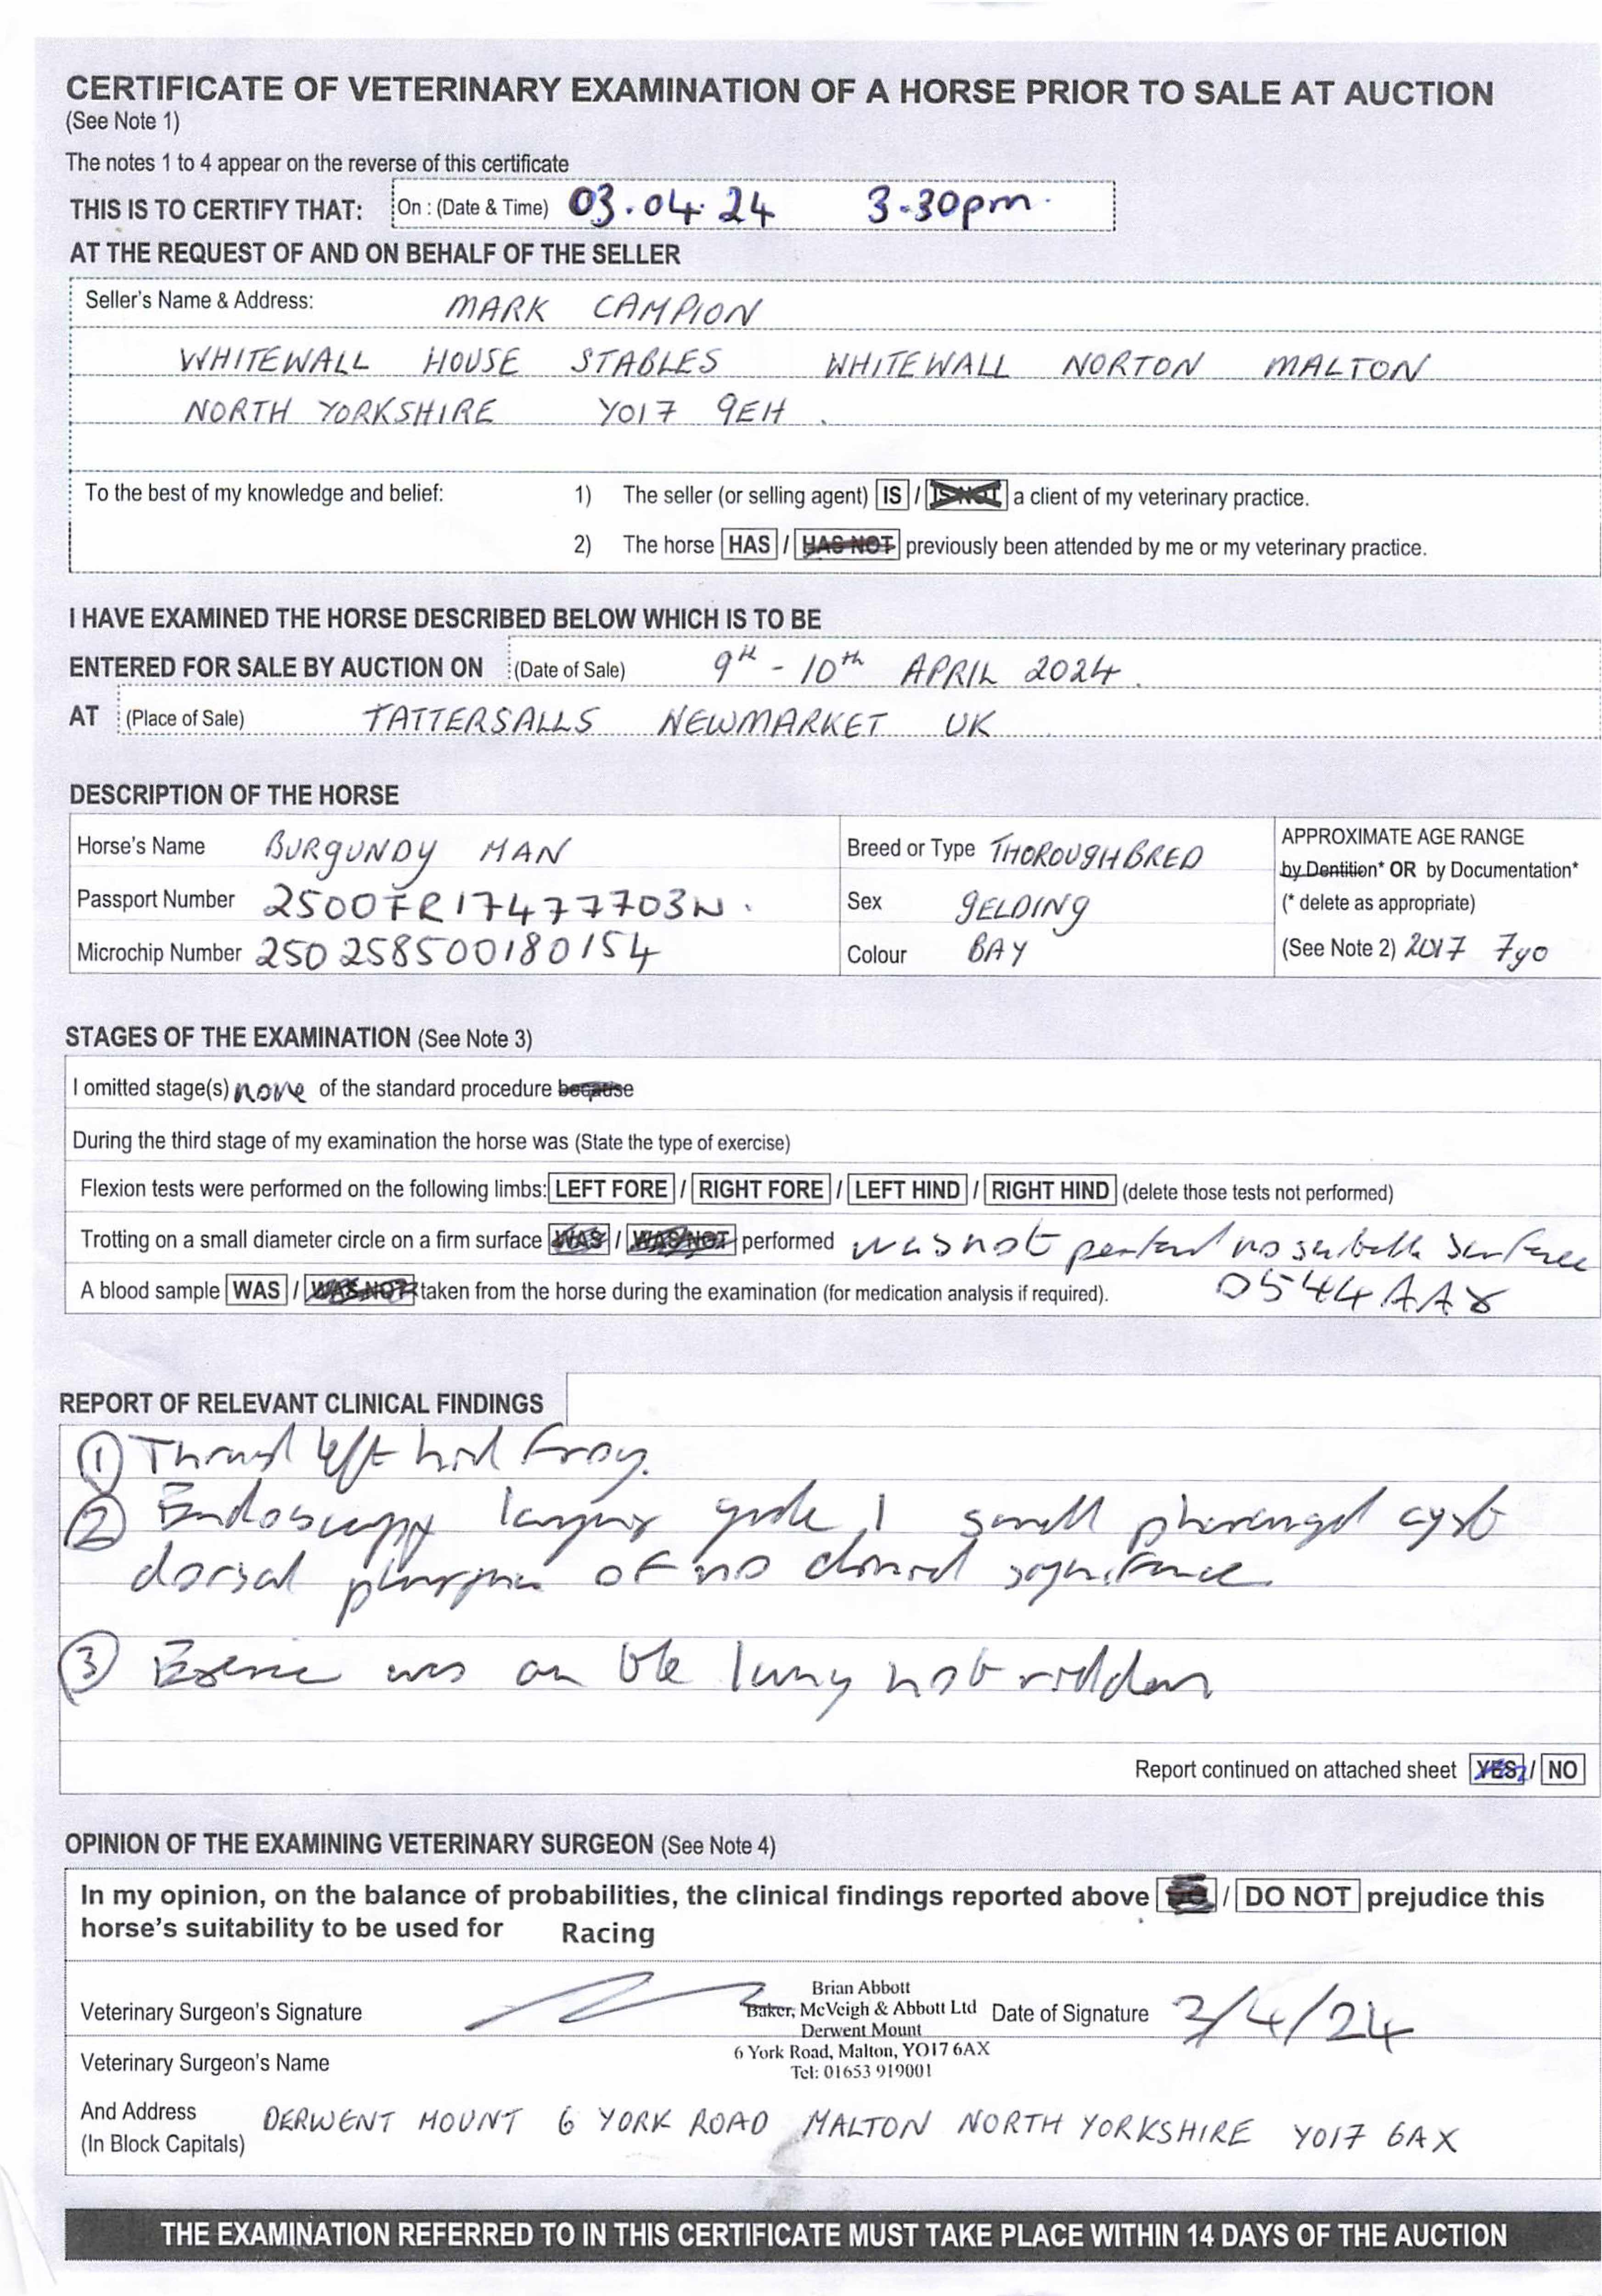 CERTIFICATE OF VETERINARY EXAMINATION OF A HORSE PRIOR TO SALE AT AUCTION
(See Note 1)
The notes 1 to 4 appear on the reverse of this certificate
THIS IS TO CERTIFY THAT: On : (Date & Time) 03.04.24 3.30pm.
AT THE REQUEST OF AND ON BEHALF OF THE SELLER
Seller's Name & Address: MARK CAMPION
WHITEWALL HOUSE STABLES WHITEWALL NORTON MALTON
NORTH YORKSHIRE YO17 9EH.
To the best of my knowledge and belief: 1) The seller (or selling agent) IS / IS NOT a client of my veterinary practice.
2) The horse HAS / HAS NOT previously been attended by me or my veterinary practice.
I HAVE EXAMINED THE HORSE DESCRIBED BELOW WHICH IS TO BE
ENTERED FOR SALE BY AUCTION ON (Date of Sale) 9th - 10th APRIL 2024.
AT (Place of Sale) TATTERSALLS NEWMARKET UK
DESCRIPTION OF THE HORSE
Horse's Name BURGUNDY MAN Breed or Type THOROUGHBRED APPROXIMATE AGE RANGE
by Dentition* OR by Documentation*
Passport Number 250OFR17477703N. Sex GELDING (* delete as appropriate)
Microchip Number 250258500180154 Colour BAY (See Note 2) 2017 7yo
STAGES OF THE EXAMINATION (See Note 3)
I omitted stage(s) none of the standard procedure because
During the third stage of my examination the horse was (State the type of exercise)
Flexion tests were performed on the following limbs: LEFT FORE / RIGHT FORE / LEFT HIND / RIGHT HIND (delete those tests not performed)
Trotting on a small diameter circle on a firm surface WAS / WAS NOT performed was not no surface
A blood sample WAS / WAS NOT taken from the horse during the examination (for medication analysis if required). 0544AAX
REPORT OF RELEVANT CLINICAL FINDINGS
1 Thrush left hind frog.
2 Endoscopy larynx grade 1 small pharyngeal cyst
dorsal pharynx of no clinical significance
3 Exercise was on the lunge not ridden
Report continued on attached sheet YES / NO
OPINION OF THE EXAMINING VETERINARY SURGEON (See Note 4)
In my opinion, on the balance of probabilities, the clinical findings reported above / DO NOT prejudice this
horse's suitability to be used for Racing
Brian Abbott
Veterinary Surgeon's Signature Baker, McVeigh & Abbott Ltd Date of Signature 3/4/24
Derwent Mount
Veterinary Surgeon's Name 6 York Road, Malton, YO17 6AX
Tel: 01653 919001
And Address DERWENT MOUNT 6 YORK ROAD MALTON NORTH YORKSHIRE YO17 6AX
(In Block Capitals)
THE EXAMINATION REFERRED TO IN THIS CERTIFICATE MUST TAKE PLACE WITHIN 14 DAYS OF THE AUCTION